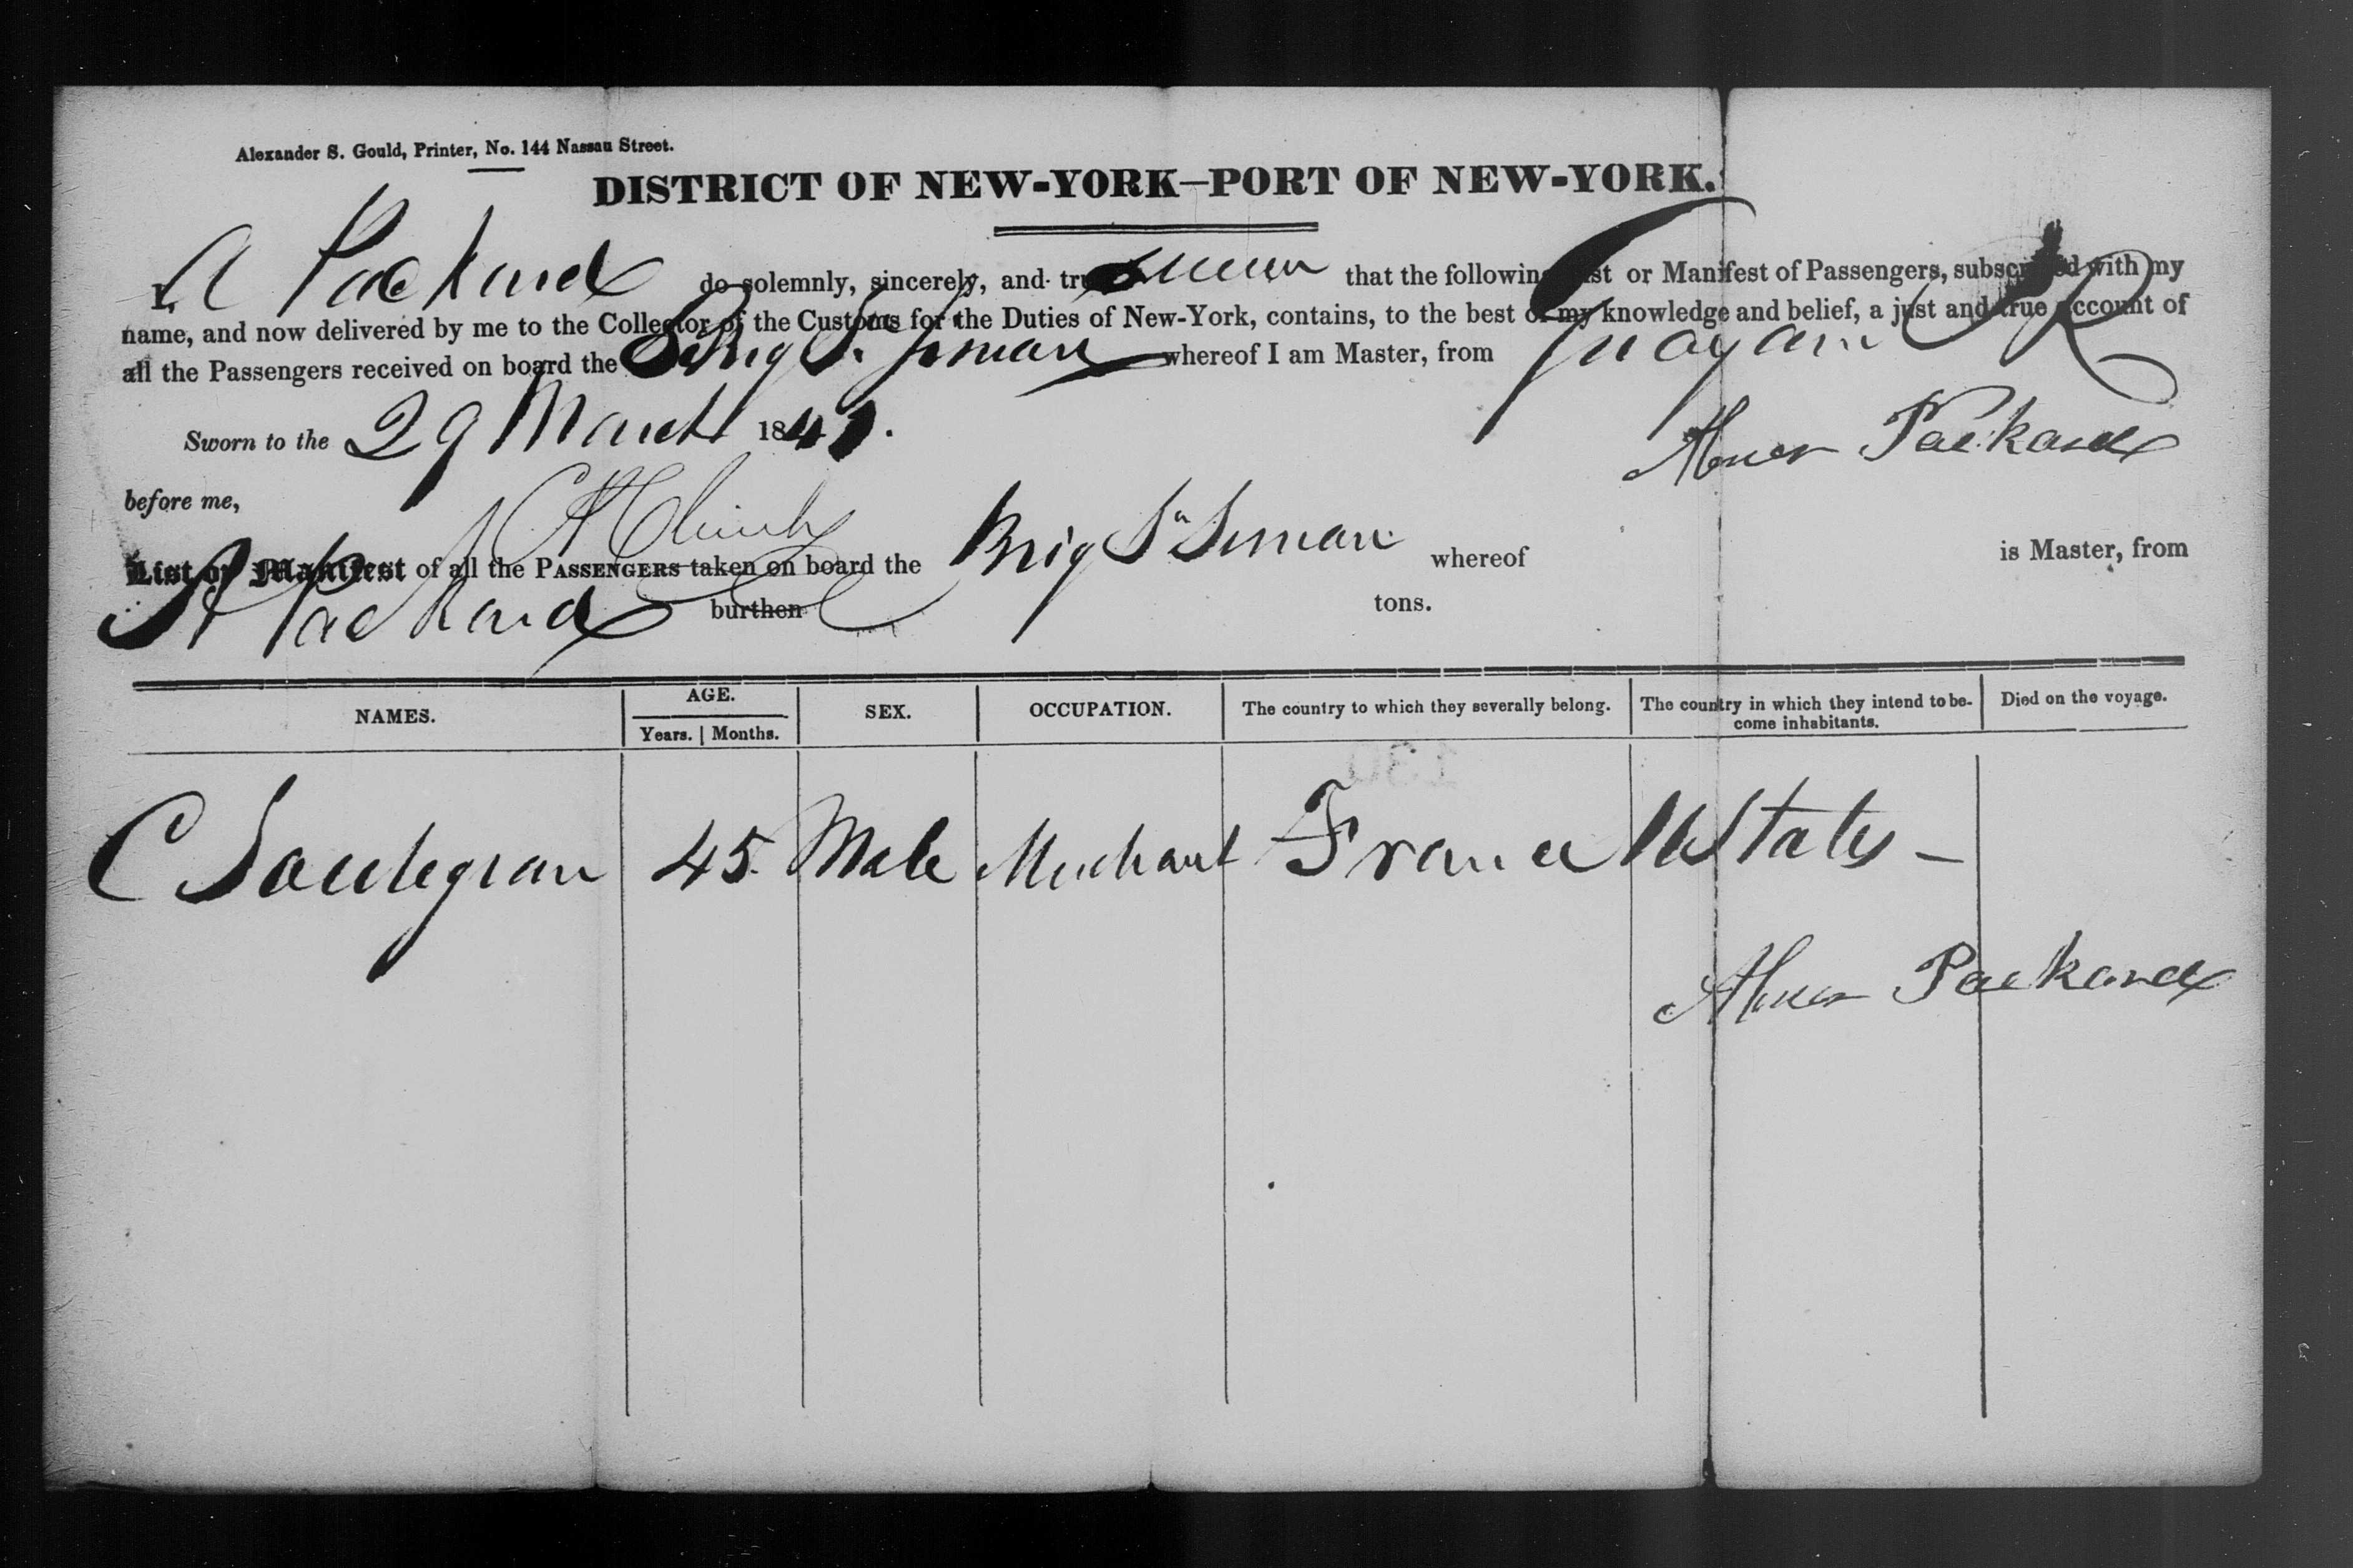 Alexander S. Gould, Printer, No. 144 Nassau Street.
DISTRICT OF NEW-YORK—PORT OF NEW-YORK.
I, A Packard do solemnly, sincerely, and truly swear that the following List or Manifest of Passengers, subscribed with my
name, and now delivered by me to the Collector of the Customs for the Duties of New-York, contains, to the best of my knowledge and belief, a just and true account of
all the Passengers received on board the Brig whereof I am Master, from Guayama P R
Sworn to the 29 March 184
Abner Packard
before me,
List or Manifest of all the PASSENGERS taken on board the Brig whereof is Master, from
A Packard burthen tons.
NAMES. AGE. SEX. OCCUPATION. The country to which they severally belong. The country in which they intend to become inhabitants. Died on the voyage.
Years. Months.
C 45 Male Merchant France U States —
Abner Packard